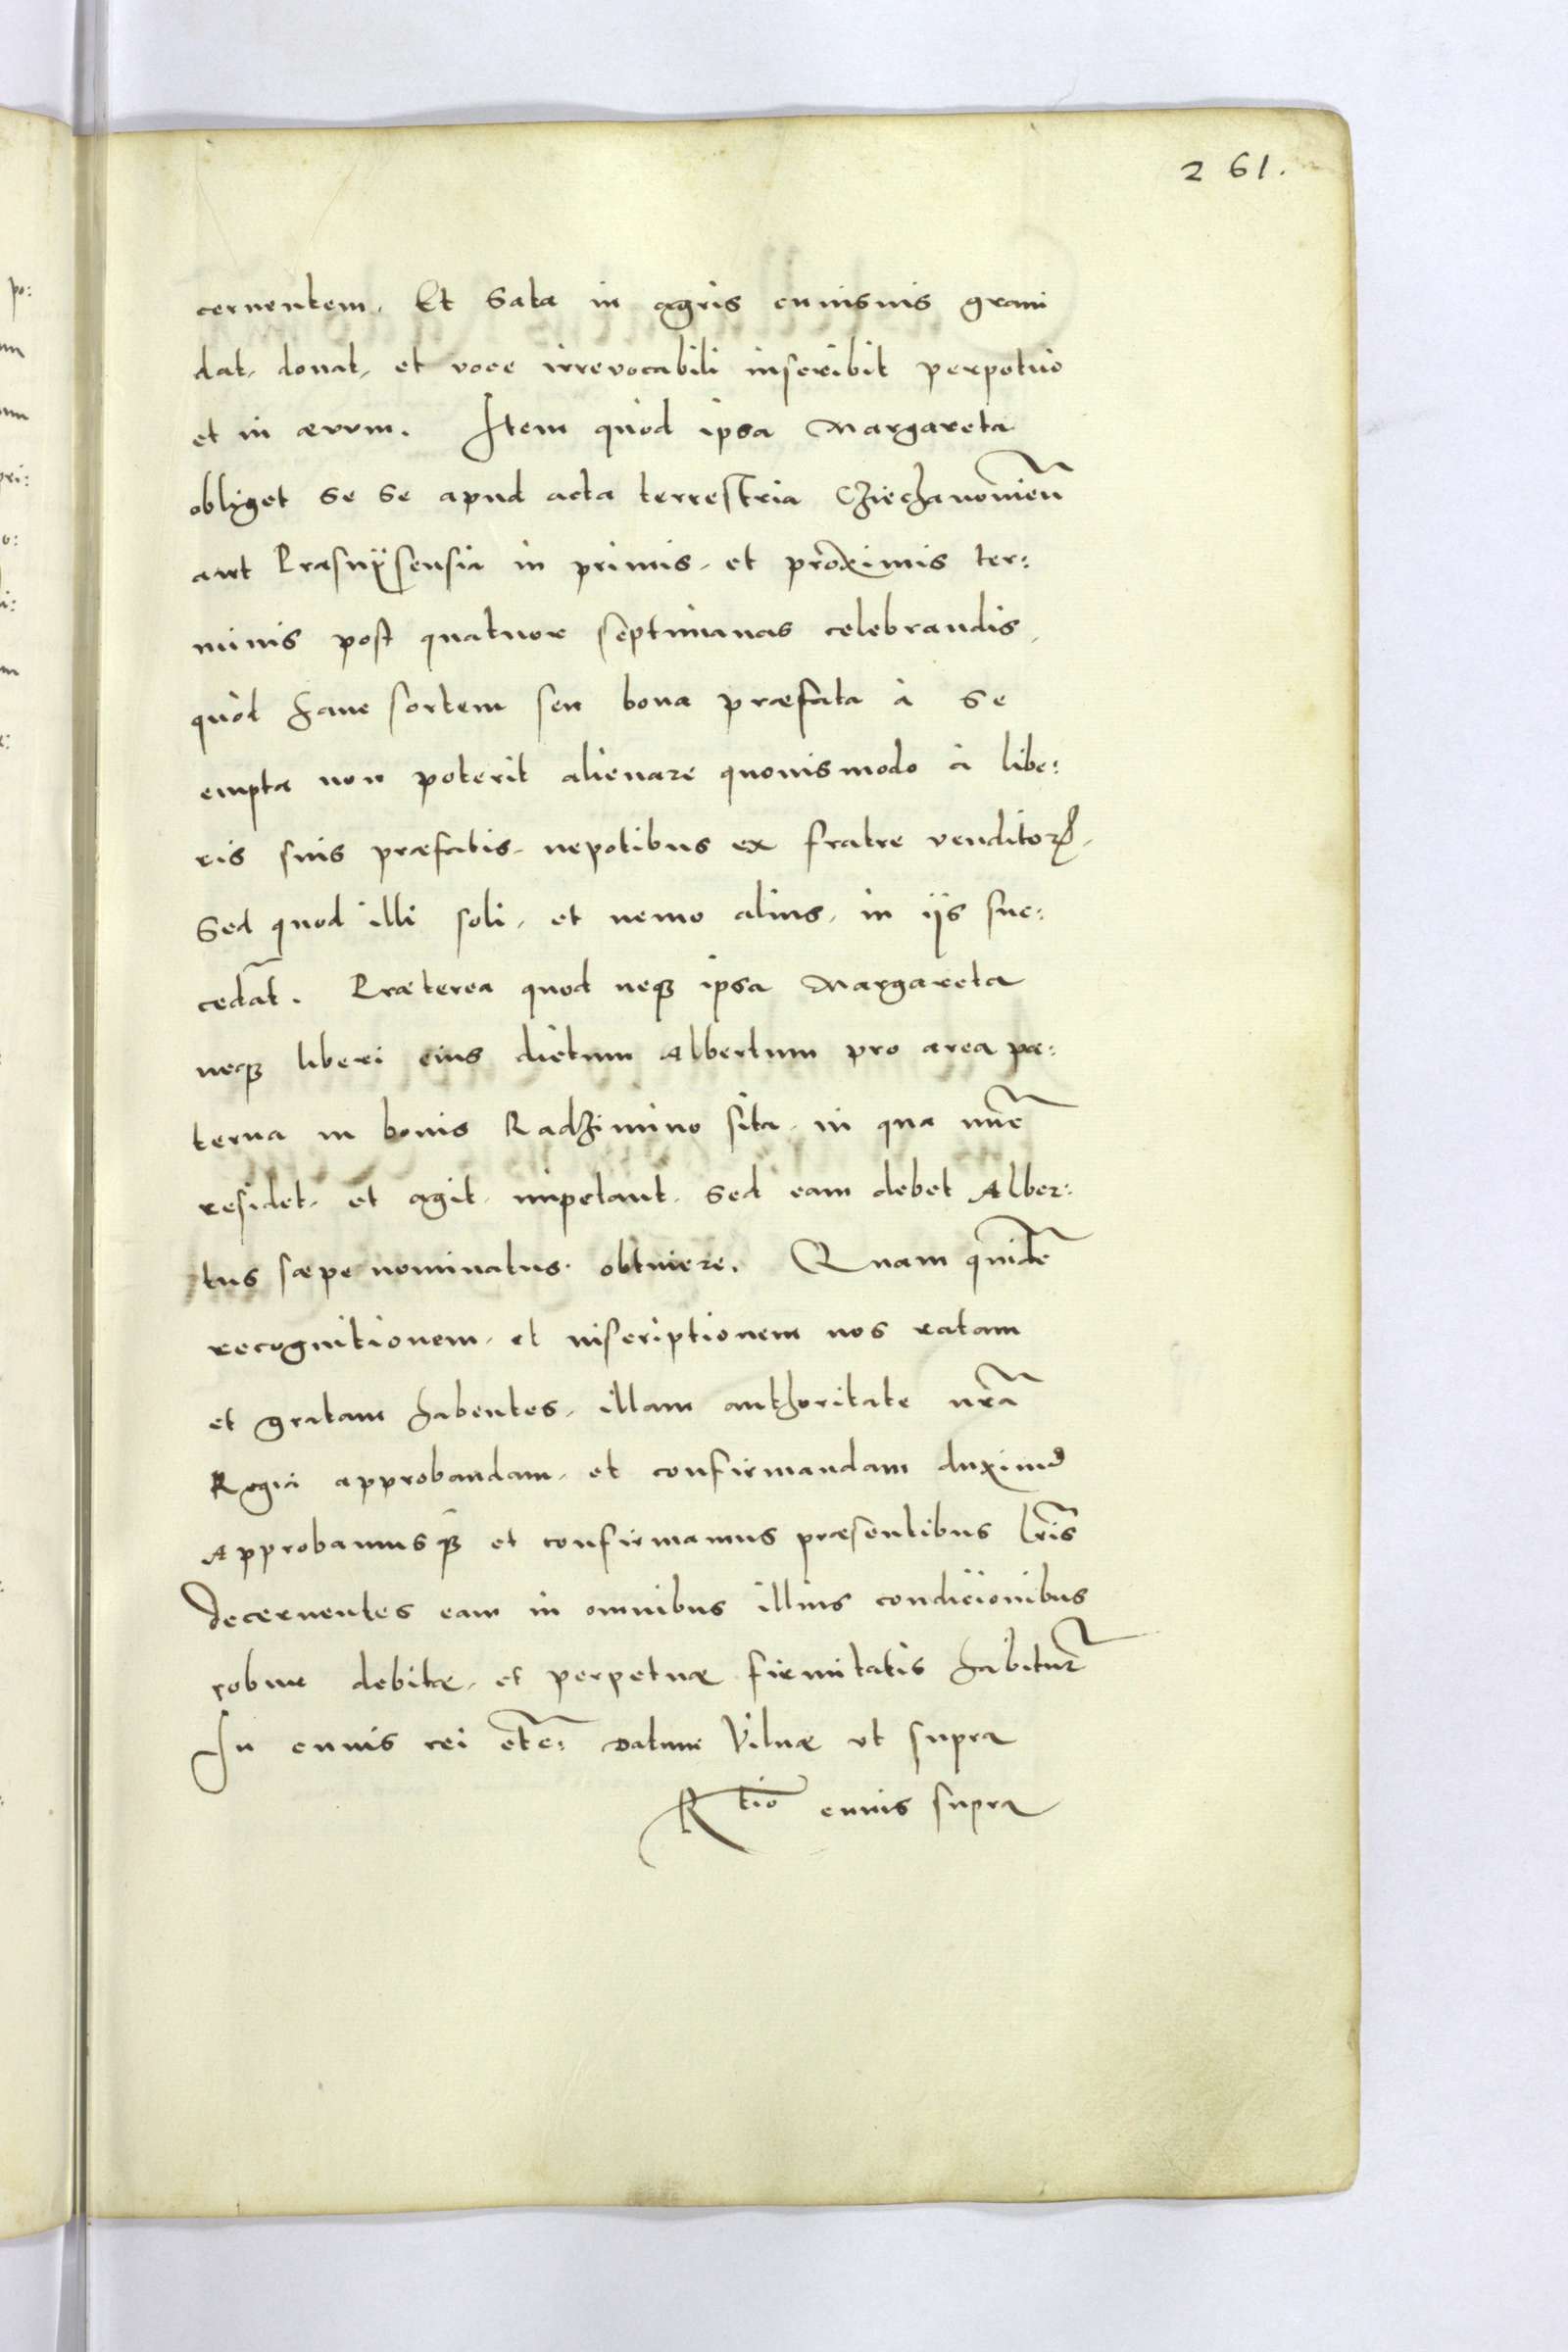 261.
cernentem. Et sata in agris cuiusuis grani
dat, donat, et voce irrevocabili inscribit perpetuò
et in ævum. Item quòd ipsa Margareta
obliget se se apud acta terrestria Cziechanoviēn
aut Prasnÿsensia in primis, et proximis ter:
minis post quatuor septimanas celebrandis,
quòd hanc sortem seu bona præfata à se
empta non poterit alienare quouismodo à libe:
ris suis præfatis, nepotibus ex fratre venditoris,
Sed quod illi soli, et nemo alius, in ijs suc:
cedāt. Præterea quod neqȝ ipsa Margareta
neqȝ liberi eius dictum Albertum pro area pa:
terna in bonis Radzimino sita, in qua nūc
residet, et agit, impetant, sed eam debet Alber:
tus sæpe nominatus obtinere. Quam quidē
recognitionem, et inscriptionem nos ratam
et gratam habentes, illam authoritate nrā
Regia approbandam, et confirmandam duximus
Approbamusqȝ et confirmamus præsentibus lrīs
Decernentes eam in omnibus illius condicionibus
robur debitæ, et perpetuæ firmitatis habiturā
In cuius rei etc: Datum Vilnæ ut supra
Rtio cuius supra
po: